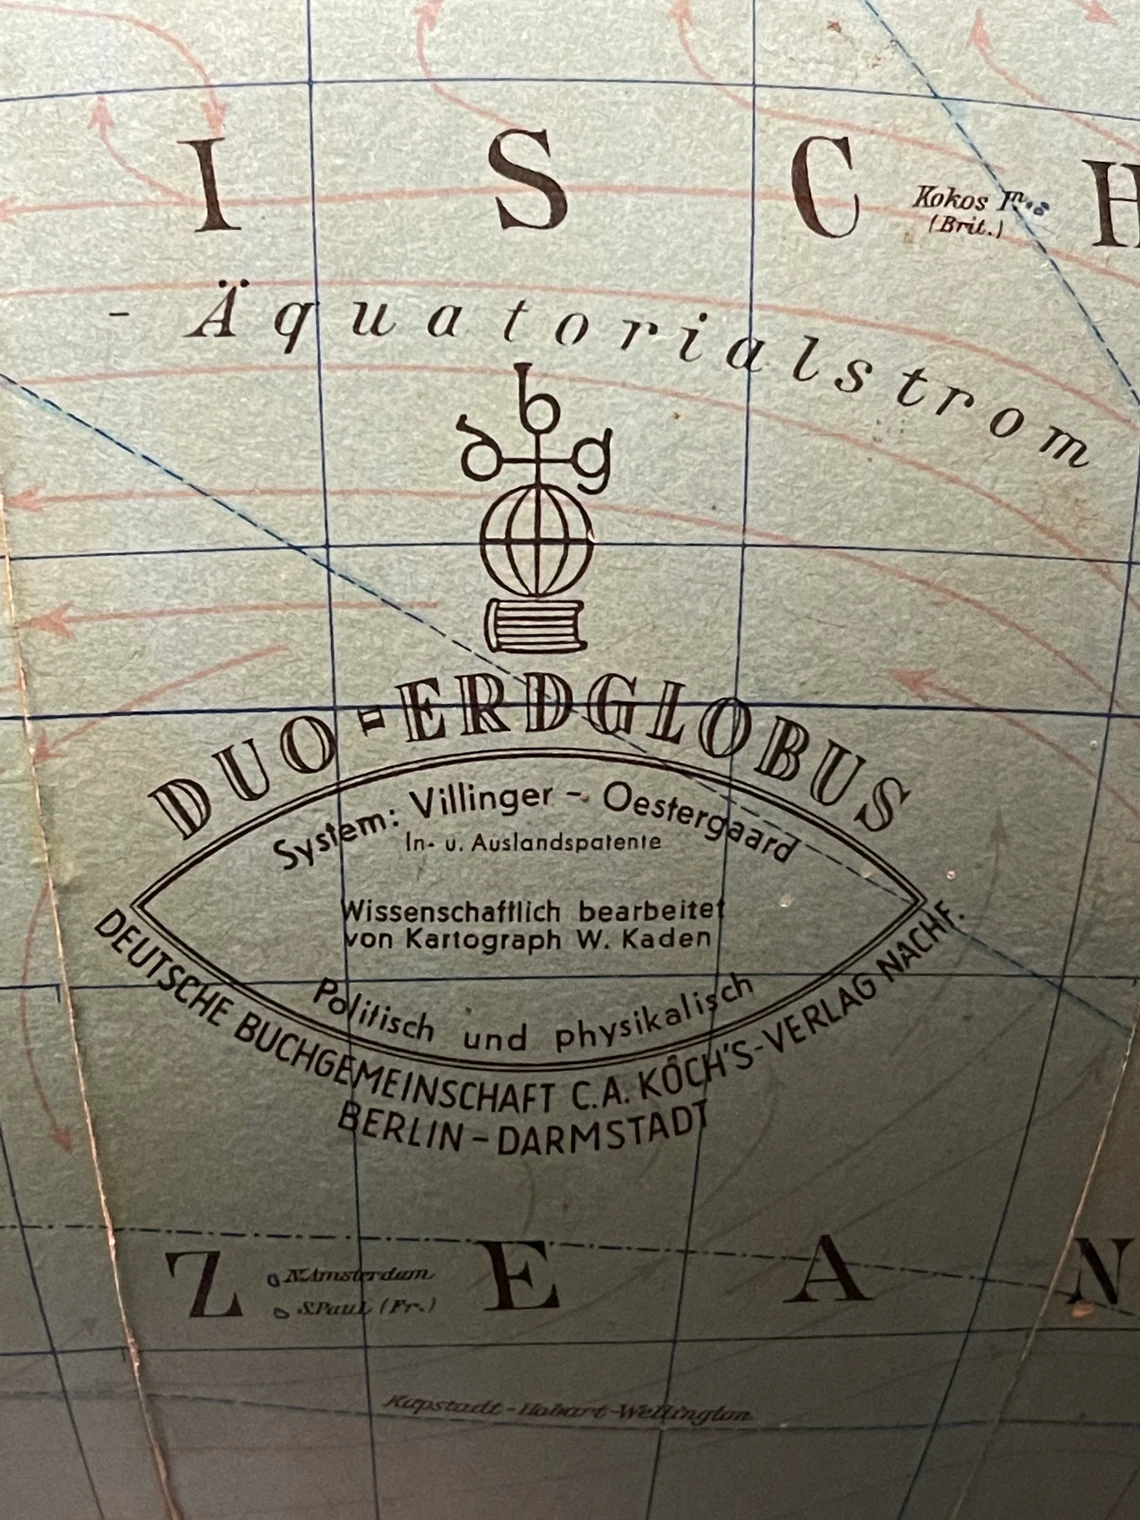 I S C H
Kokos In.
(Brit.)
- Äquatorialstrom
b
d g
DUO=ERDGLOBUS
System: Villinger - Oestergaard
In- u. Auslandspatente
Wissenschaftlich bearbeitet
von Kartograph W. Kaden
Politisch und physikalisch
DEUTSCHE BUCHGEMEINSCHAFT C.A. KOCH'S-VERLAG NACHF.
BERLIN-DARMSTADT
Z E A N
N.Amsterdam
S.Paul (Fr.)
Kapstadt-Hobart-Wellington